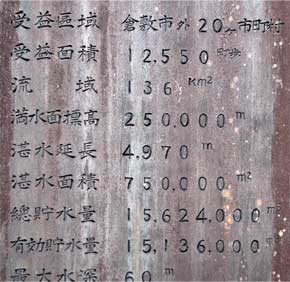 受益區域 倉敷市外20ヶ市町村
受益面積 12,550町歩
流域 136KM²
満水面標高 250,000m
湛水延長 4,970m
湛水面積 750,000m²
總貯水量 15,624,000m³
有効貯水量 15,136,000m³
最大水深 60m